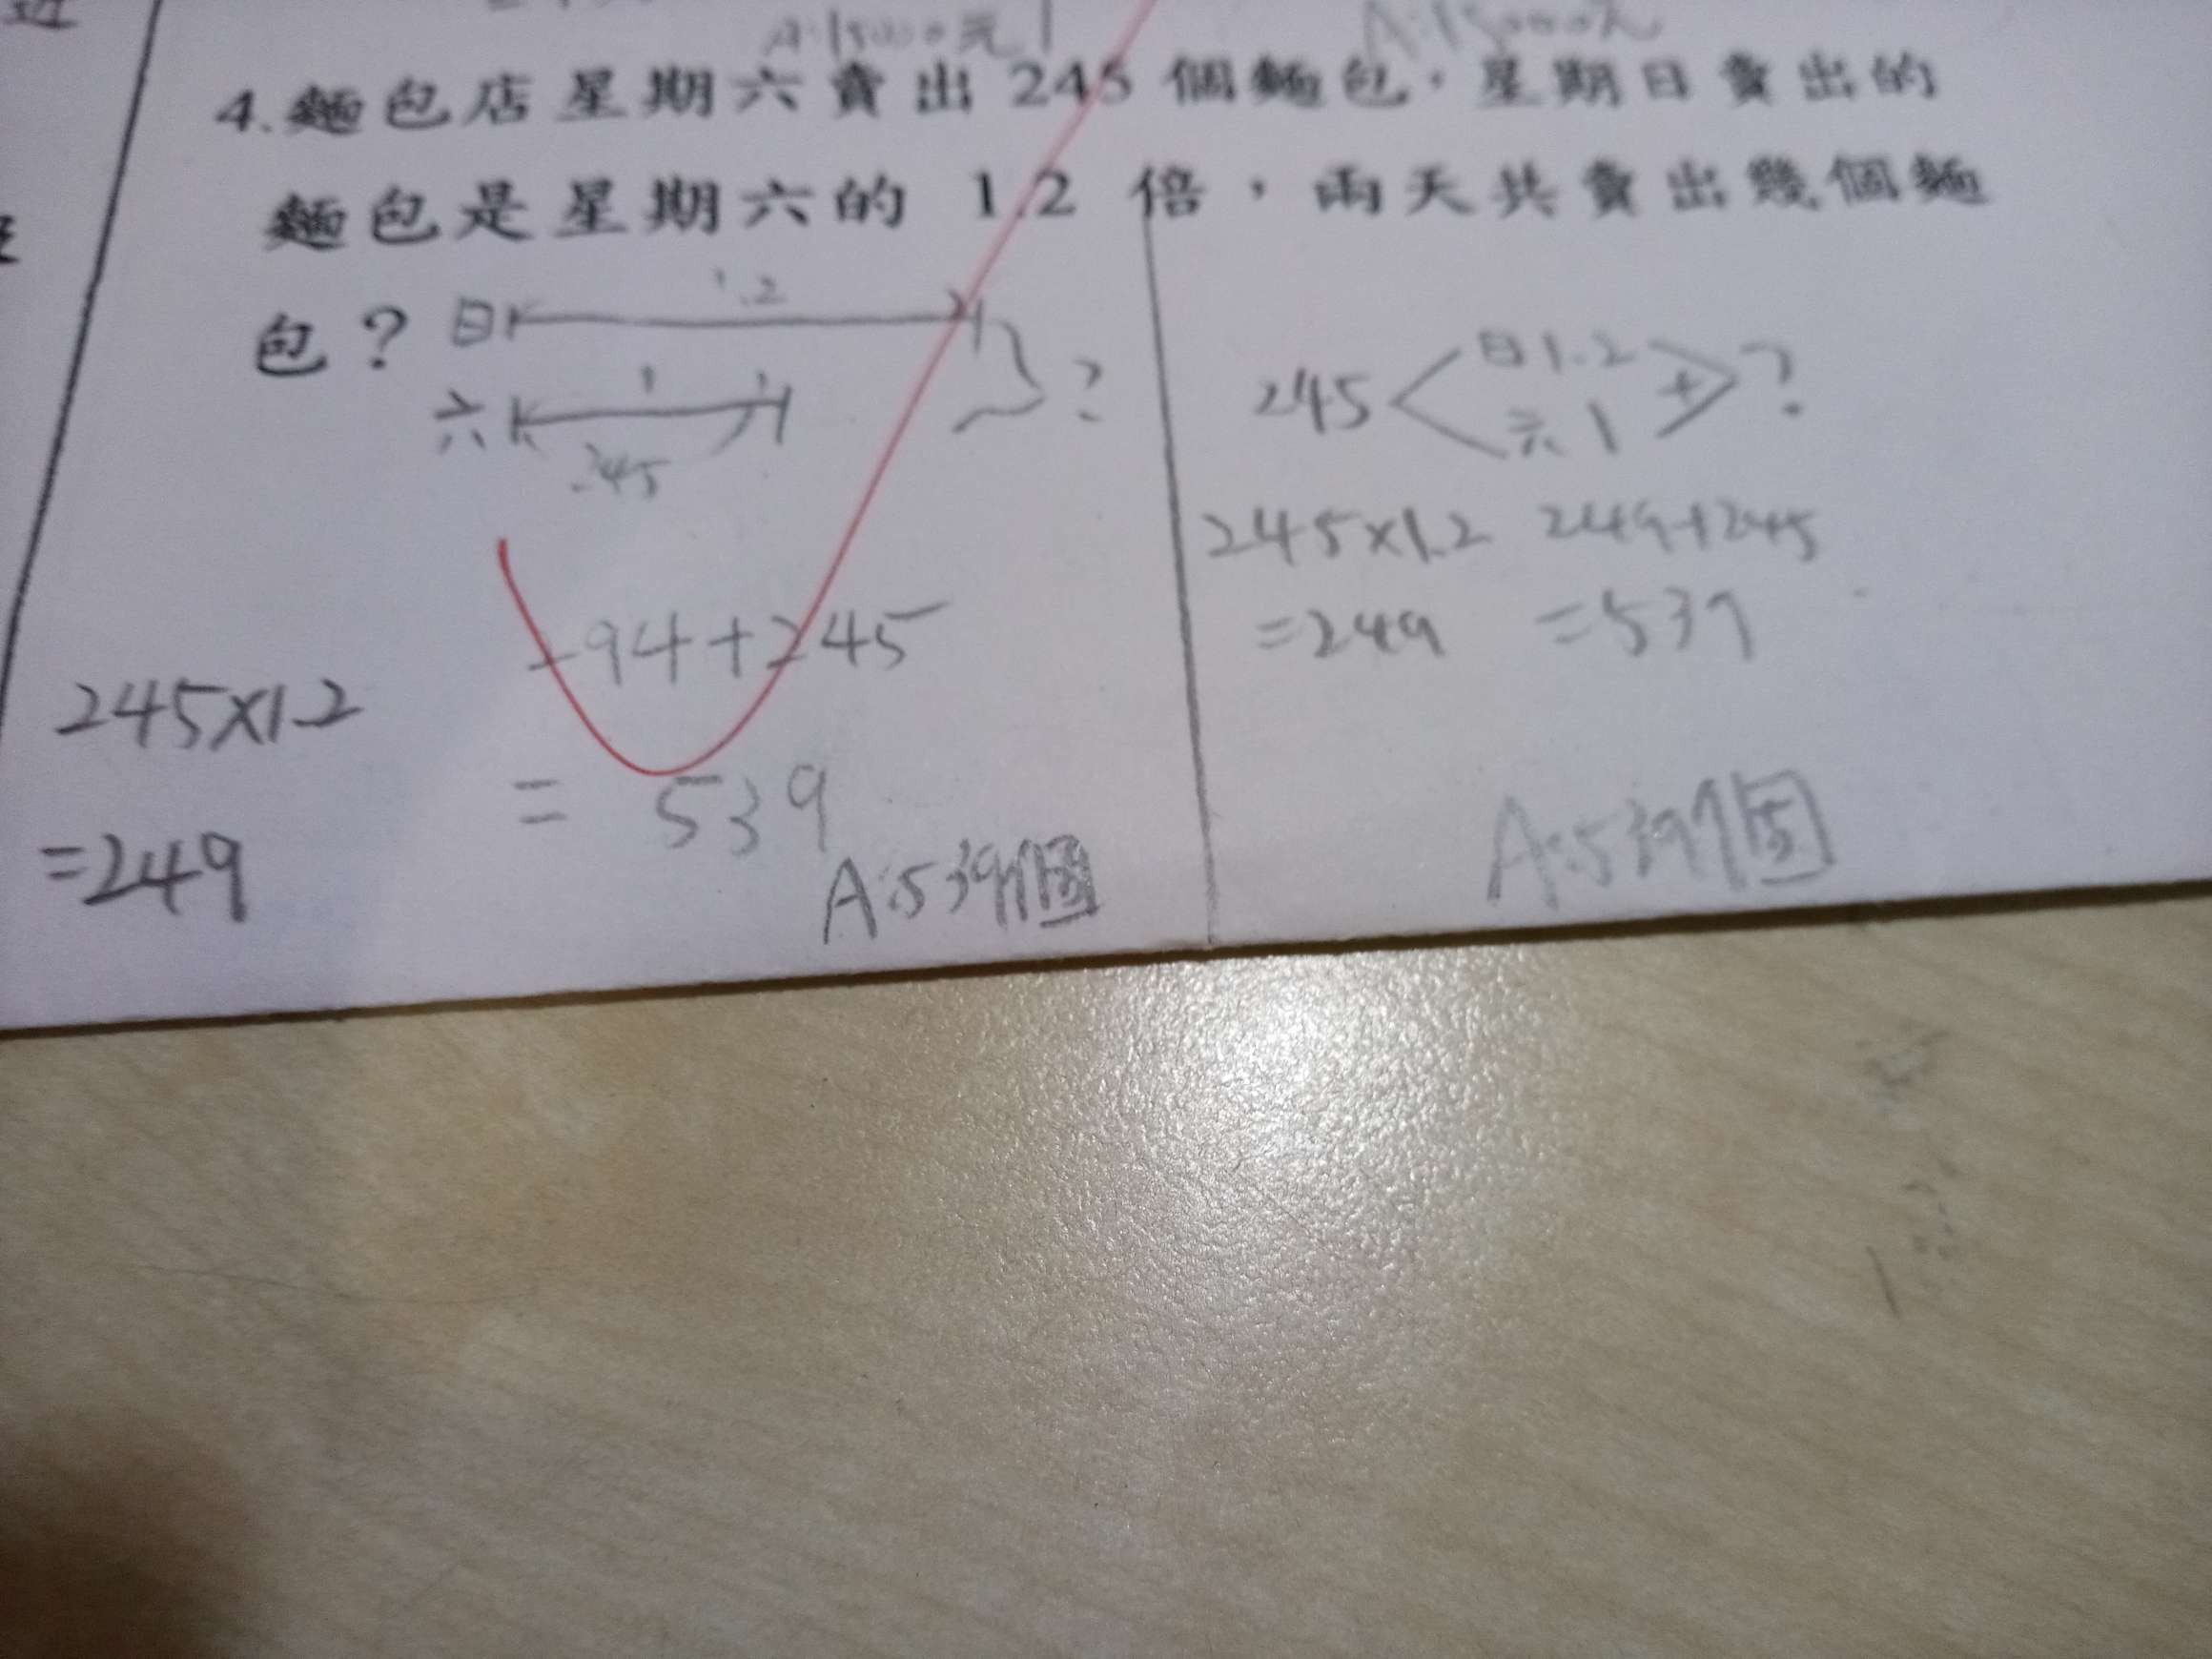 A:15000元
A:15000元
4.麵包店星期六賣出 245 個麵包，星期日賣出的
麵包是星期六的 1.2 倍，兩天共賣出幾個麵
包？
日 1.2
六 1
245
?
245×1.2
=249
294+245
= 539
A:539個
245
日1.2
六1
+
?
245×1.2
=249
249+245
=539
A:539個